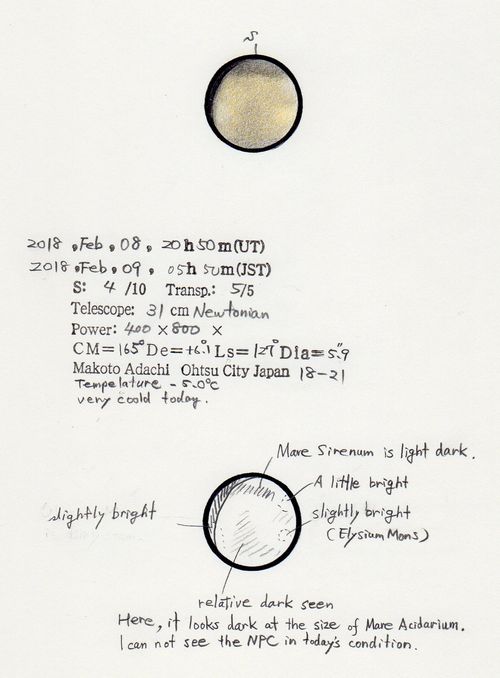 S
2018, Feb, 08, 20h50m(UT)
2018, Feb, 09, 05h50m(JST)
S: 4 /10 Transp.: 5/5
Telescope: 31 cm Newtonian
Power: 400 × 800 ×
CM=165° De=+6.1° Ls=127° Dia=5".9
Makoto Adachi Ohtsu City Japan 18-21
Tempelature -5.0°C
very coold today.
Mare Sirenum is light dark.
A little bright
slightly bright
slightly bright
(Elysium Mons)
relative dark seen
Here, it looks dark at the size of Mare Acidarium.
I can not see the NPC in today's condition.